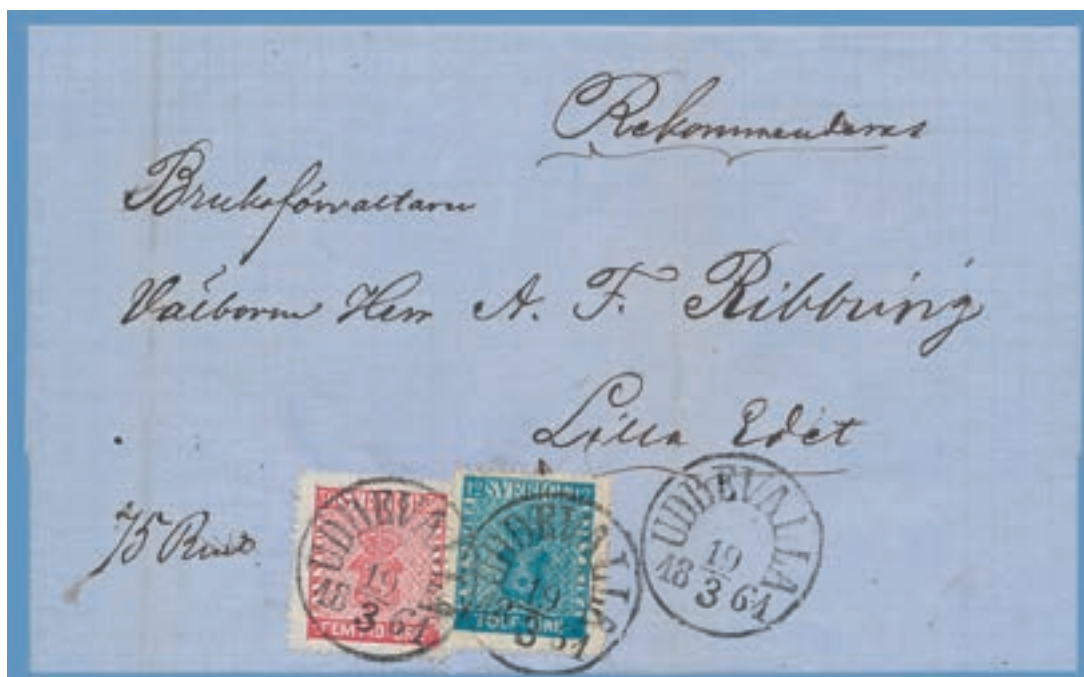 Rekommenderas
Bruksförvaltaren
Välborne Herr A. F. Ribbing
Lilla Edet
75 Rust
SVERIGE
FEMTIO ÖRE
UDDEVALLA
19
3
18 64
12 SVERIGE 12
TOLF ÖRE
UDDEVALLA
19
3
18 64
UDDEVALLA
19
3
18 64